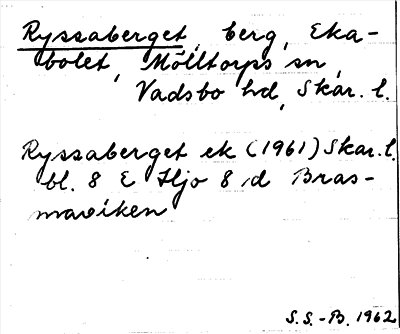 Ryssaberget, berg, Eka-
bolet, Mölltorps sn,
Vadsbo hd, Skar. l.
Ryssaberget ek (1961) Skar. l.
bl. 8 E Hjo 8 d Bras-
maviken
S.S.-B. 1962